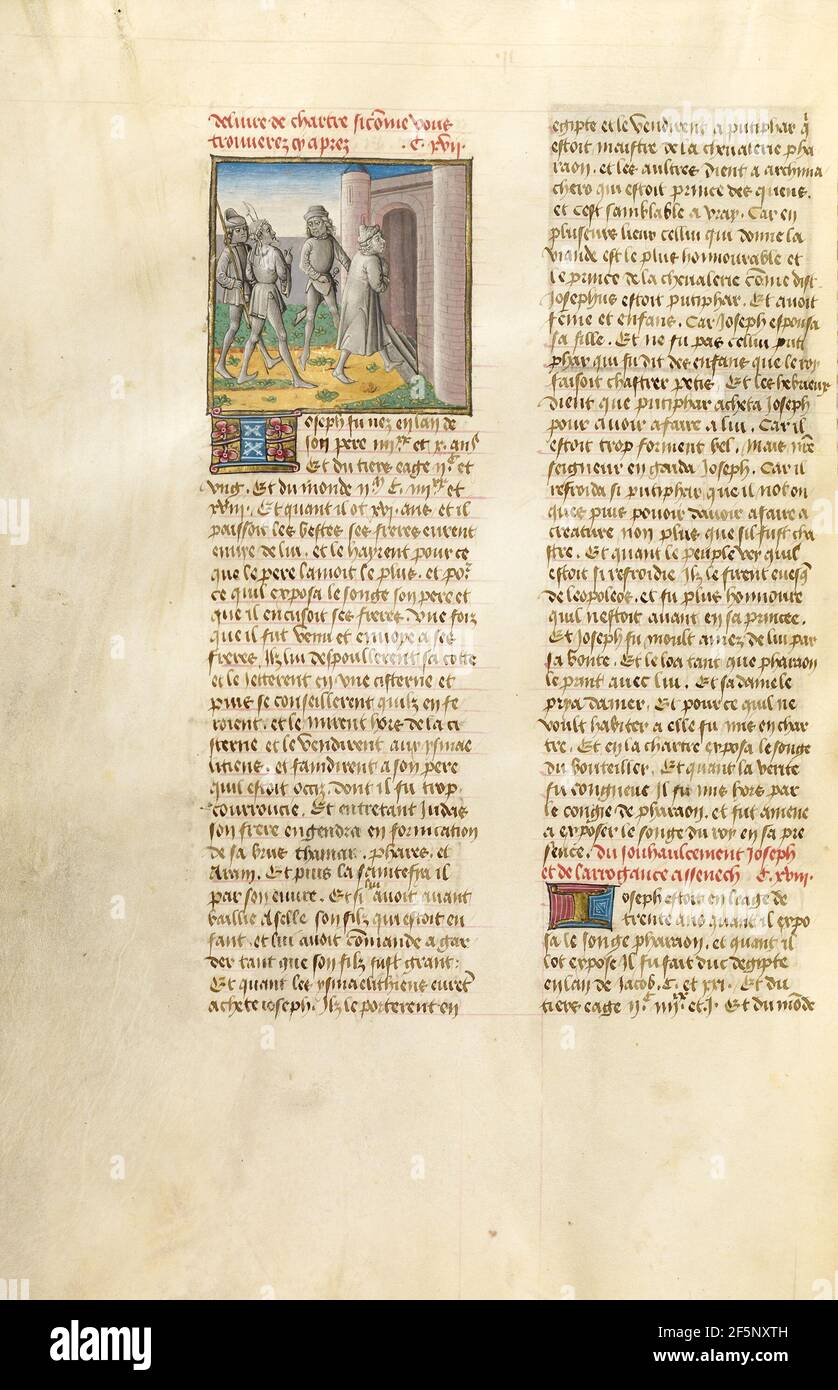 deliure de chartre si cõme vous
trouuerez cy aprez . C. xvii.
Joseph fu nez en lan de
son pere iiii.xx et x. ans
Et du tiers eage ii.c et
vng. Et du monde ii.m C. iiii.xx et
xviii. Et quant il ot xvi. ans. et il
paissoit les bestes ses freres eurent
enuie de lui. et le hayrent pour ce
que le pere lamoit le plus. et por
ce quil exposa le songe son pere et
que il encusoit ses freres. Vne foiz
que il fut venu et enuoye a ses
freres. Ilz lui despoullerent sa cotte
et le ietterent en vne cisterne et
puis se conseillerent quilz en fe
roient. et le mirent hors de la ci
sterne et le vendirent aux ysmae
litiens. et faindirent a son pere
quil estoit occiz. dont il fu trop
courroucie. Et entretant Iudas
son frere engendra en fornication
de sa brus thamar. phares. et
Aram. Et puis la
par son enuie. Et si lui auoit auant
baillie a selle son filz qui estoit en
fant. et lui auoit cõmande a gar
der tant que son filz fust grant:
Et quant les ysmaelithiens eurẽt
achete ioseph. Ilz le porterent en
egipte et le vendirent a putiphar q̃
estoit maistre de la cheualerie pha
raon. et les aultres dient a archima
chero qui estoit prince des queus.
et cest samblable a vray. Car en
pluseurs lieux cellui qui donne la
viande est le plus honnourable et
le prince de la cheualerie cõme dist
Josephus estoit putiphar. Et auoit
fẽme et enfans. Car Joseph espousa
sa fille. Et ne fu pas cellui puti
phar qui fu dit des enfans que le roy
faisoit chastrer petis. Et les hebrieux
dient que putiphar acheta Joseph
pour auoir a faire a lui. Car il
estoit trop forment bel. Mais nr̃e
seigneur en garda Joseph. Car il
refroida si putiphar que il not on
ques puis pouoir dauoir a faire a
creature non plus que sil fust cha
stre. Et quant le peuple vey quil
estoit si refroidie Ilz le firent euesq̃
de leopoleos. et fu plus honnoure
quil nestoit auant en sa princee.
Et Joseph fu moult amez de lui par
sa bonte. Et le loa tant que pharaon
le prant auec lui. Et sa dame le
prya damer. Et pour ce quil ne
voult habiter a elle fu mis en char
tre. Et en la chartre exposa le songe
du bouteillier. Et quant la verite
fu congneue il fu mis hors par
le congie de pharaon. et fut amene
a exposer le songe du roy en sa pre
sence. Du souhaulcement Joseph
et de larrogance assenech C. xviii.
Joseph estoit en leage de
trente ans quant il expo
sa le songe pharaon. et quant il
lot expose Il fu fait duc degipte
en lan de Jacob. C. et xxi. Et du
tiers eage ii.c iiii.xx et .i. Et du mõde
alamy
Image ID: 2F5NXTH
www.alamy.com